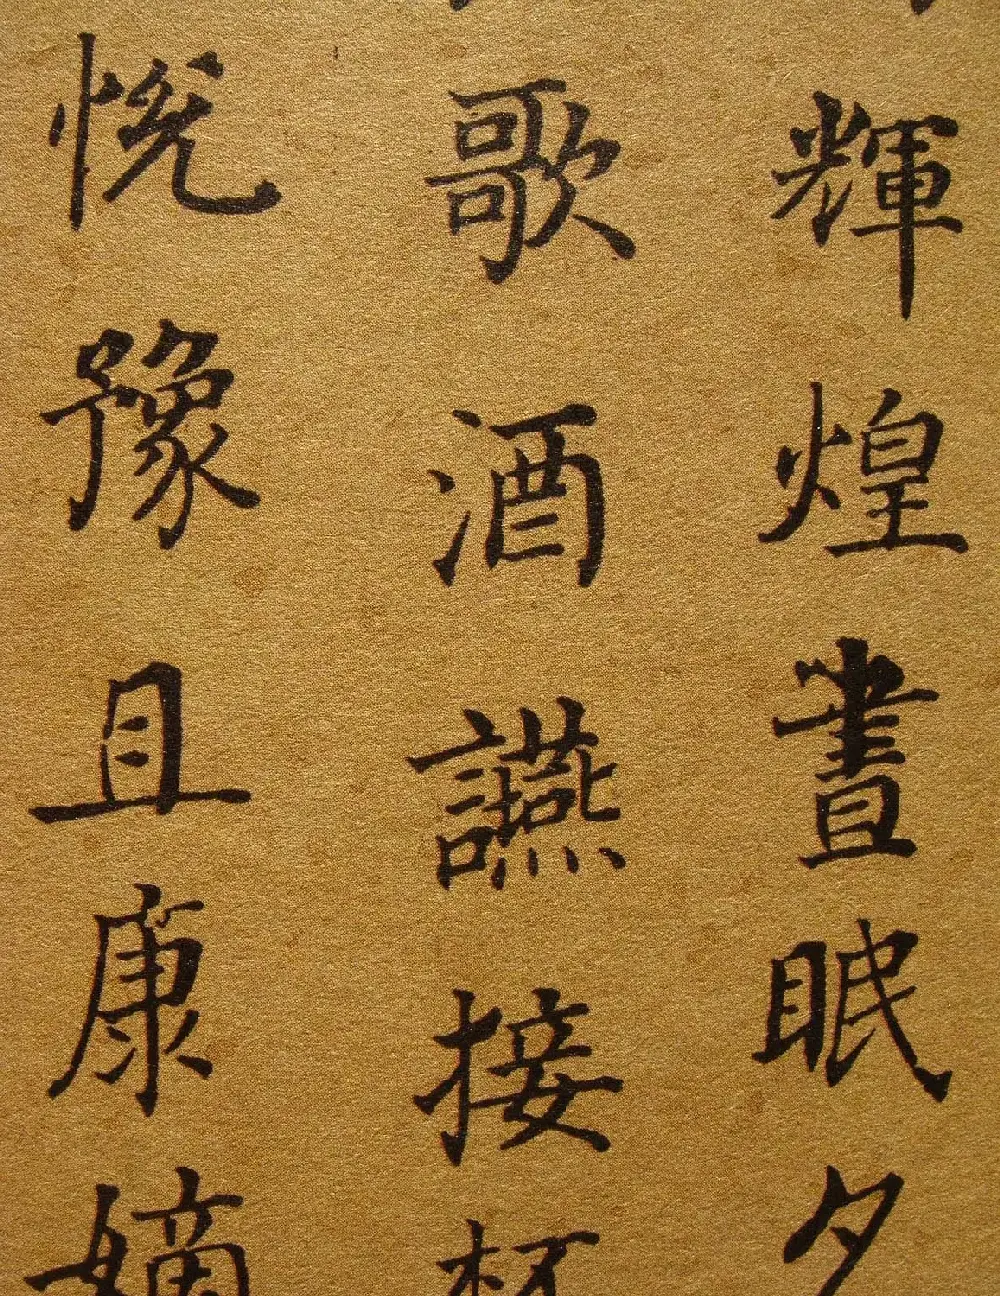 輝煌晝眠夕
歌酒讌接杯
悅豫且康嫡